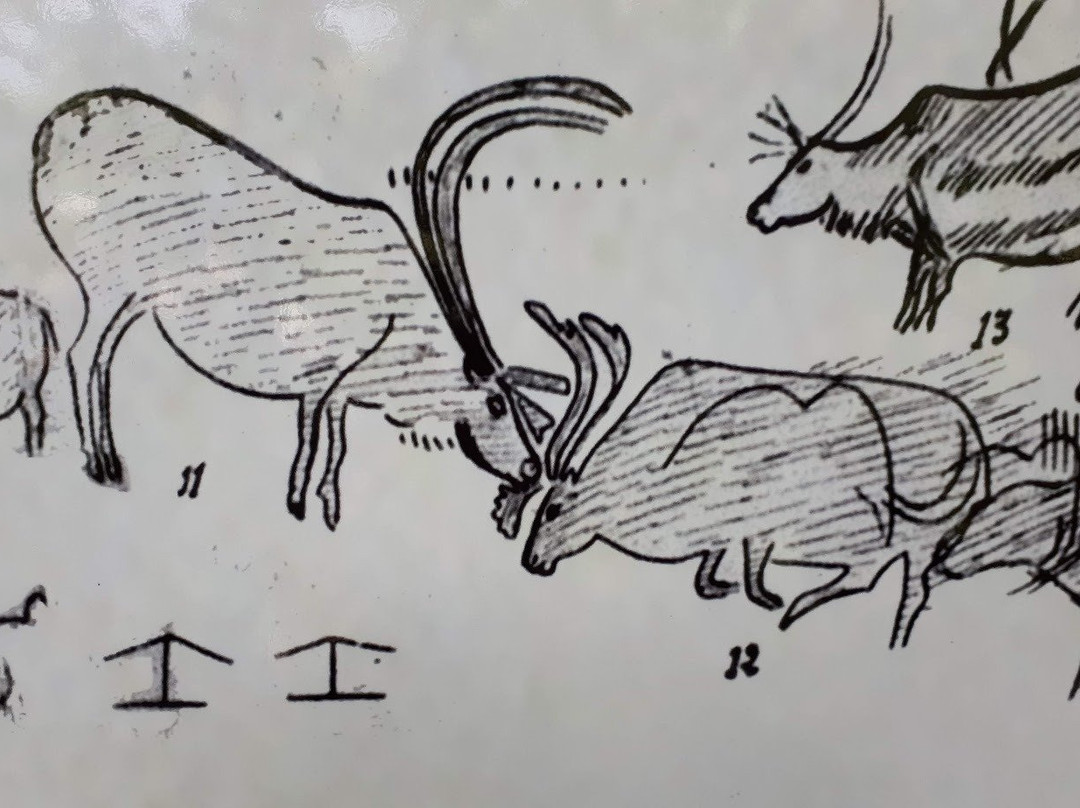 13
11
12